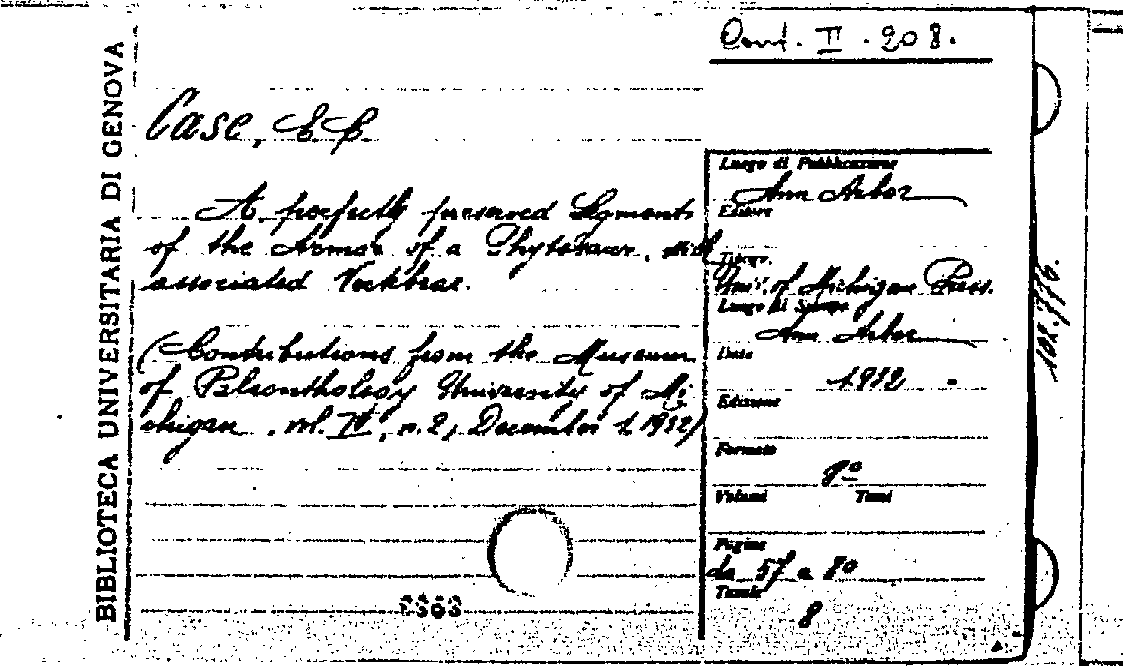 Cont. II. 208.
BIBLIOTECA UNIVERSITARIA DI GENOVA
Case, E.C.
A perfectly preserved Segment
of the Armor of a Phytosaur, with
associated Vertebrae.
(Contributions from the Museum
of Paleonthology University of Mi-
chigan, vol. IV, n. 2, December 1, 1932)
Luogo di Pubblicazione
Ann Arbor
Editore
Tipogr.
Univ. of Michigan Press.
Luogo di Stampa
Ann Arbor
Data
1932
Edizione
Formato
8º
Volumi Tomi
Pagine
da 57 a 80
Tavole
8